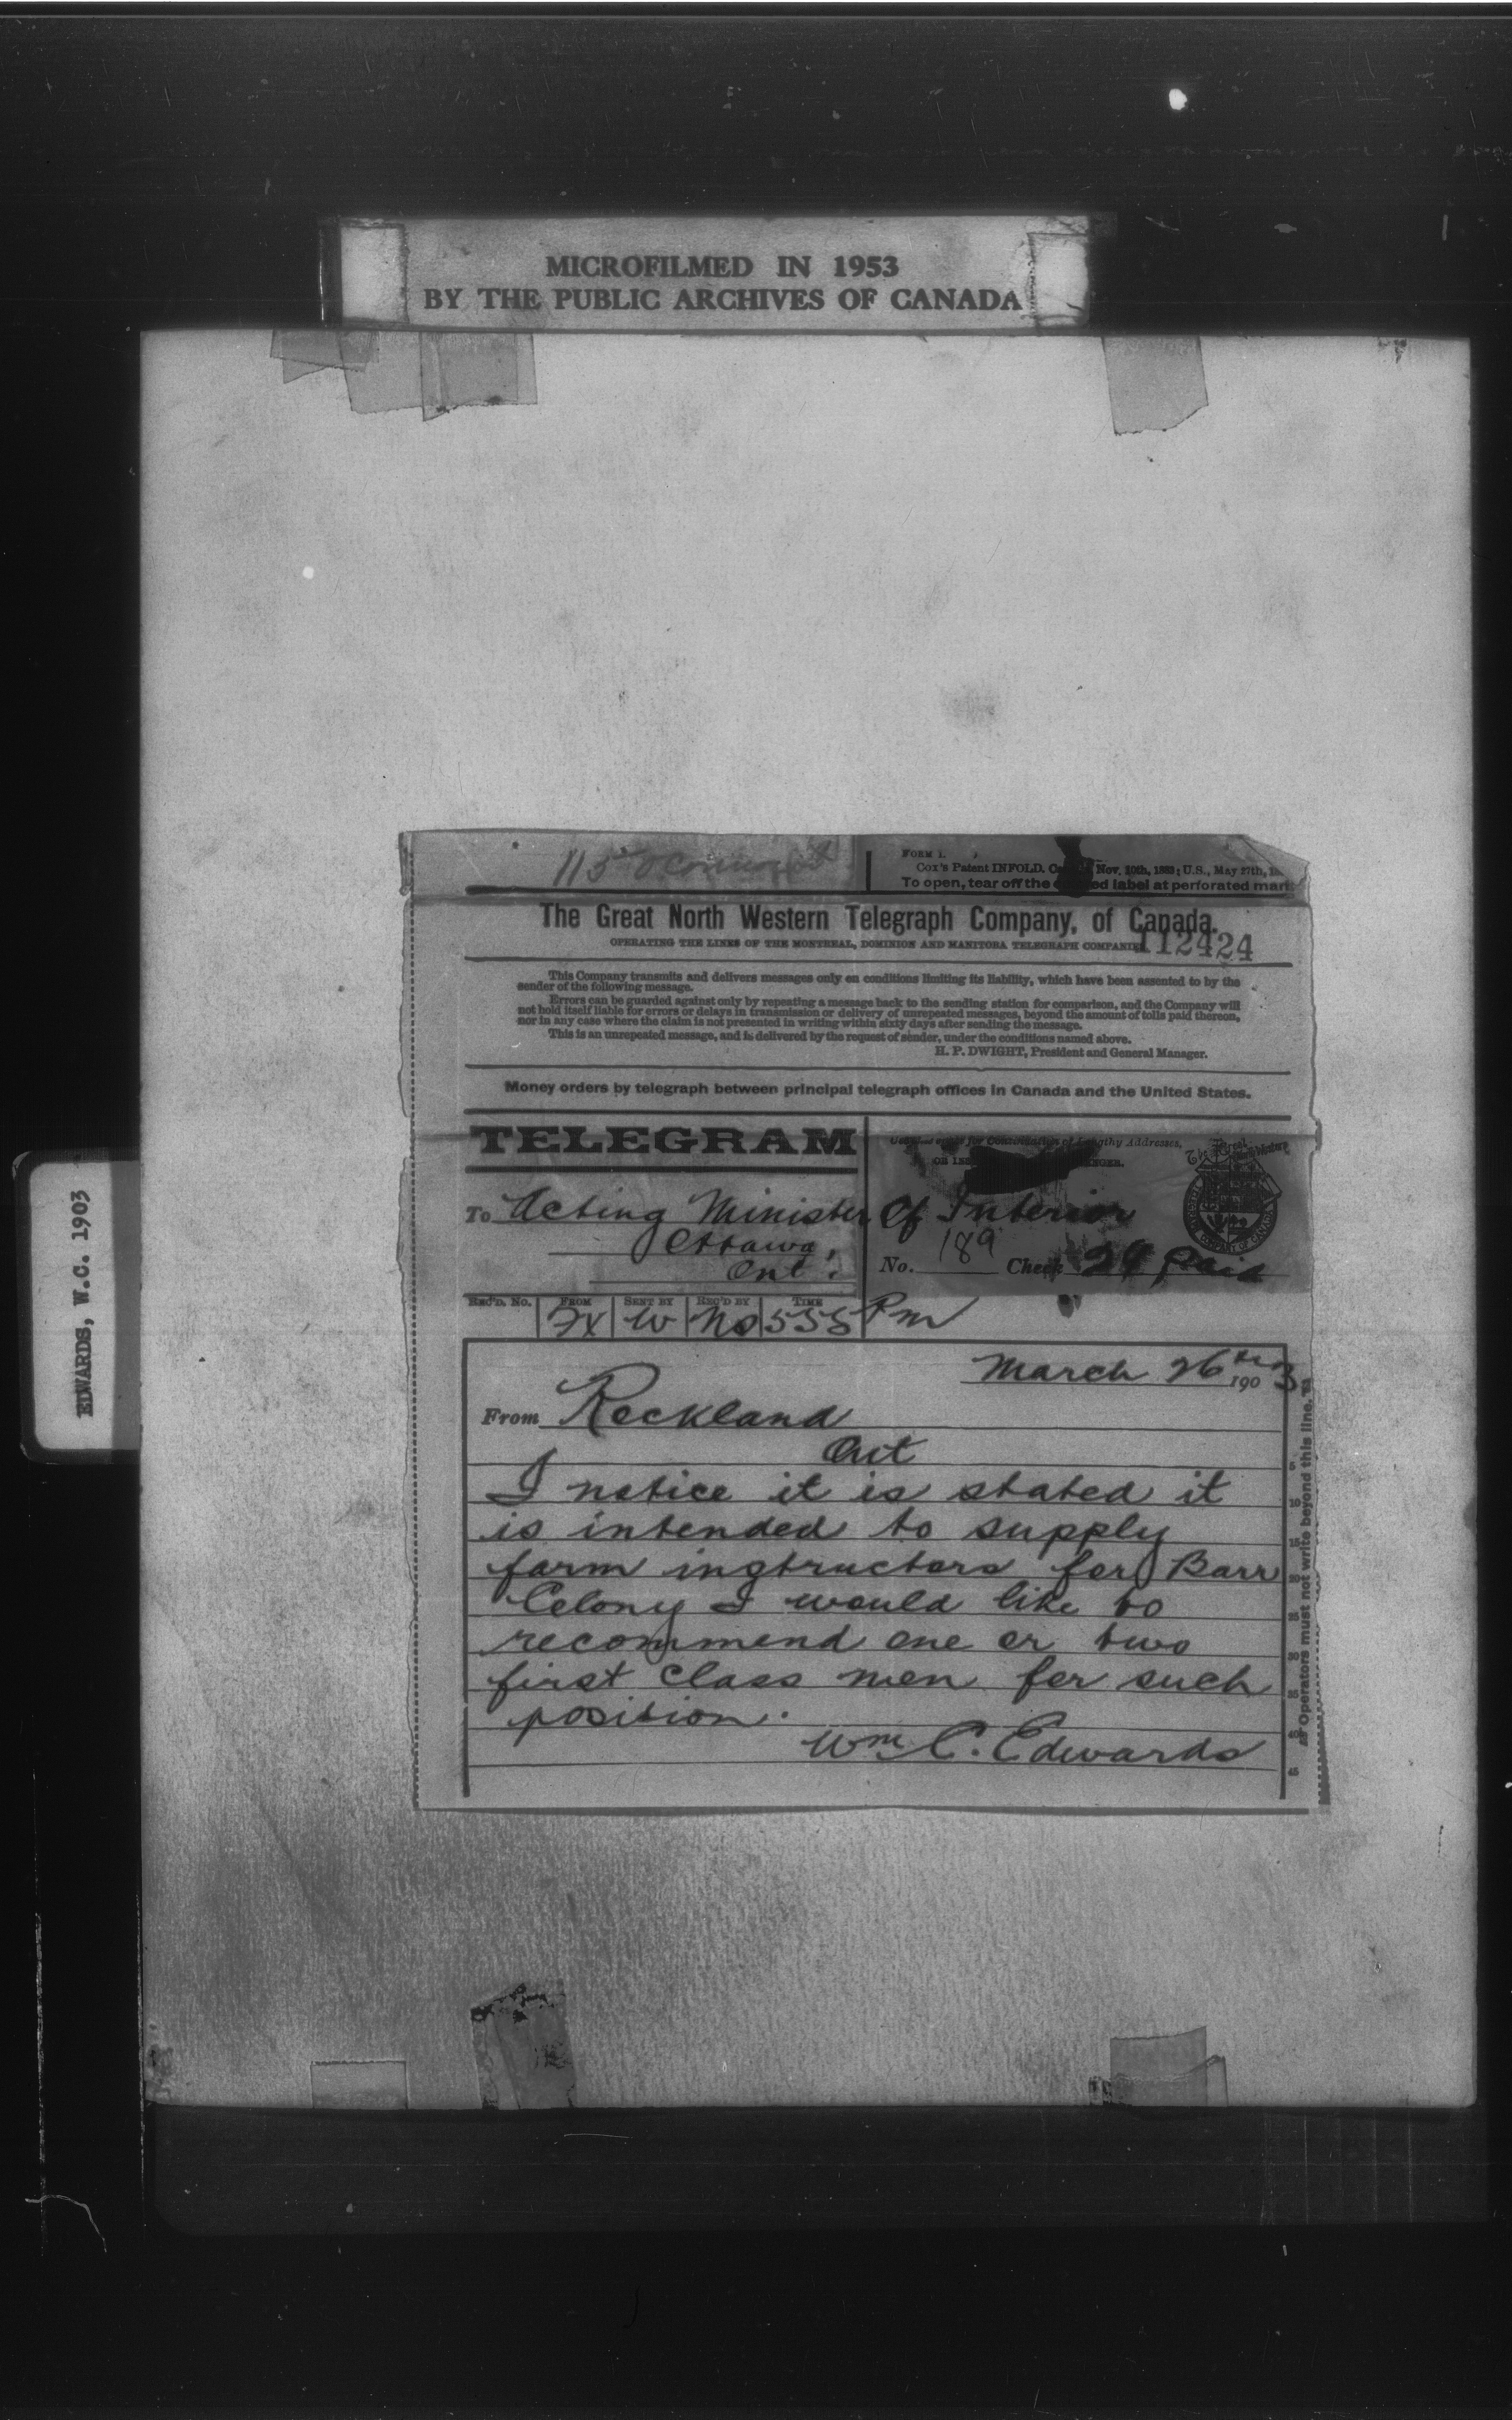 MICROFILMED IN 1953
BY THE PUBLIC ARCHIVES OF CANADA
EDWARDS, W.C. 1903
115 O'Connor St
FORM 1.
Cox's Patent INFOLD. Nov. 20th, 1883; U.S., May 27th,
To open, tear off the label at perforated mark
The Great North Western Telegraph Company, of Canada.
OPERATING THE LINES OF THE MONTREAL, DOMINION AND MANITOBA TELEGRAPH COMPANIES
112424
This Company transmits and delivers messages only on conditions limiting its liability, which have been assented to by the
sender of the following message.
Errors can be guarded against only by repeating a message back to the sending station for comparison, and the Company will
not hold itself liable for errors or delays in transmission or delivery of unrepeated messages, beyond the amount of tolls paid thereon,
nor in any case where the claim is not presented in writing within sixty days after sending the message.
This is an unrepeated message, and is delivered by the request of sender, under the conditions named above.
H. P. DWIGHT, President and General Manager.
Money orders by telegraph between principal telegraph offices in Canada and the United States.
TELEGRAM
for Continuation of Lengthy Addresses,
To Acting Minister of Interior
Ottawa,
Ont.
No. 189 Check 29 paid
REC'D. No. FROM SENT BY REC'D BY TIME
Fx W No 555 Pm
March 26th 1903
From Rockland
Ont
I notice it is stated it
is intended to supply
farm instructors for Barr
Colony I would like to
recommend one or two
first class men for such
position.
Wm C. Edwards
5
10
15
20
25
30
35
40
45
Operators must not write beyond this line.